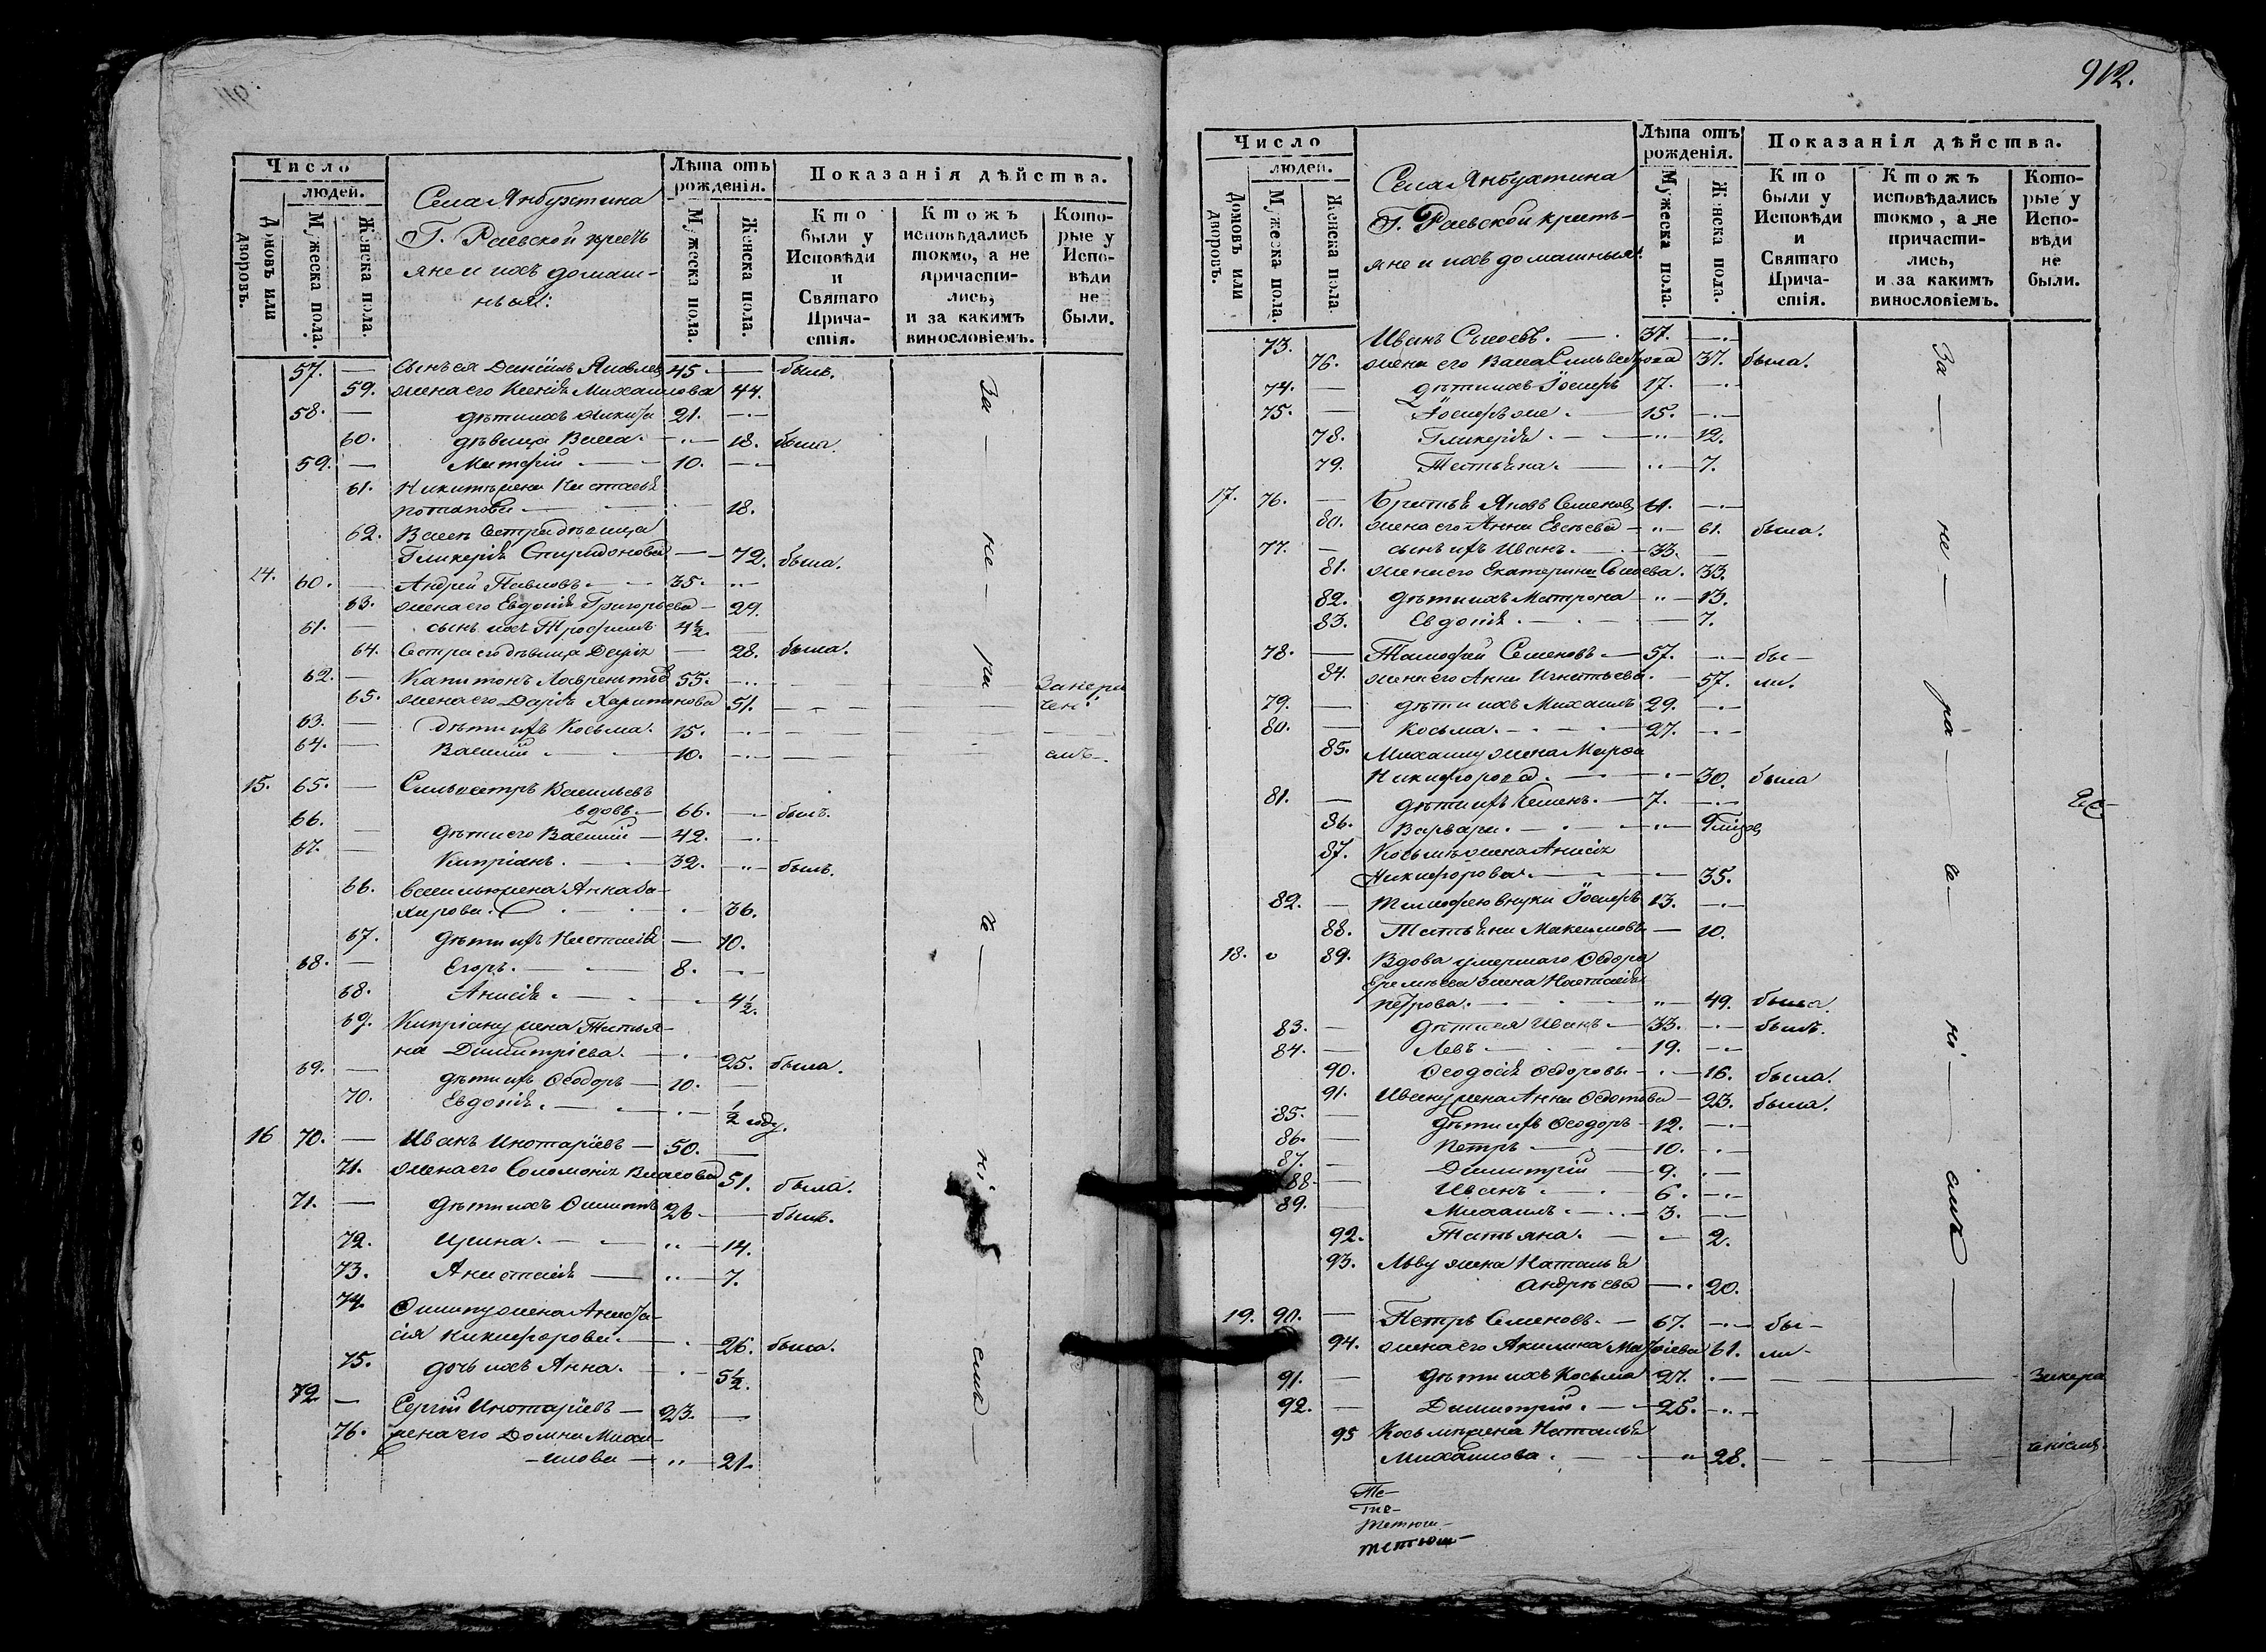 912.
Число
людей.
Домовъ или дворовъ.
Мужеска пола.
Женска пола.
Села Янбухтина
Г. Раевской кресть
яне и ихъ домаш-
ныя:
Лѣта отъ рожденія.
Мужеска пола.
Женска пола.
Показанія дѣйства.
Кто были у Исповѣди и Святаго Прича-стія.
Ктожъ исповѣдались токмо, а не причасти-лись, и за какимъ винословіемъ.
Кото-рые у Испо-вѣди не были.
57. — Сынъ ея Даніилъ Яковлевъ 45. — былъ.
59. жена его Ксенія Михаилова 44.
58. — дѣти ихъ Никита 21. —
60. дѣвица Васса — 18. была.
59. — Матфій — 10. —
61. Никиты жена Настасья
Потапова — 18.
62. Вассы сестра дѣвица
Гликерія Спиридонова — 72. была.
14. 60. — Андрей Павловъ — 35. —
63. жена его Евдокія Григорьева — 29.
61. — сынъ ихъ Трофимъ 4½. —
64. Сестра его дѣвица Дарія — 28. была.
62. — Капитонъ Лаврентьевъ 55. — Занера
65. жена его Дарія Харитонова 51. — чені
63. — дѣти ихъ Косьма. 15. —
64. — Василій — 10. — емъ.
15. 65. — Сильвестръ Васильевъ
вдовъ. — 66. — былъ.
66. — дѣти его Василій — 42. —
67. — Кипріанъ. — 32. — былъ.
66. Василью жена Анна За-
харова. — 36.
67. дѣти ихъ Настасія — 10.
68. — Егоръ. — 8. —
68. Анисія. — 4½.
69. Кипріану жена Татья-
на Димитріева. — 25. была.
69. — дѣти ихъ Ѳеодоръ — 10. —
70. Евдокія. — ½ году.
16 70. — Иванъ Инотаріевъ — 50. —
71. жена его Соломонія Власова 51. была.
71. — дѣти ихъ Осиппъ 26 — былъ.
72. Ирина. — 14.
73. Анастасія — 7.
74. Осиппу жена Анаста-
сія Никифорова. — 26. была.
75. дочь ихъ Анна. — 5½.
72 — Сергій Инотаріевъ — 23. —
76. жена его Домна Миха-
илова — 21.
За — не — ра — че — ні — емъ —
Число
людей.
Домовъ или дворовъ.
Мужеска пола.
Женска пола.
Села Янбухтина
Г. Раевской кресть-
яне и ихъ домашныя:
Лѣта отъ рожденія.
Мужеска пола.
Женска пола.
Показанія дѣйства.
Кто были у Исповѣди и Святаго Прича-стія.
Ктожъ исповѣдались токмо, а не причасти-лись, и за какимъ винословіемъ.
Кото-рые у Испо-вѣди не были.
73. Иванъ Сысоевъ. — 37. —
76. жена его Васса Сильвестрова 37. была.
74. — дѣти ихъ Іосифъ 17. —
75. — Іосифъ же. — 15. —
78. Гликерія. — 12.
79. Татьяна. — 7.
17. 76. — Братья Яковъ Семеновъ 61. —
80. жена его Анна Евсѣева — 61. была.
77. — сынъ ихъ Иванъ. — 33. —
81. жена его Екатерина Сысоева. 33.
82. дѣти ихъ Матрона — 13.
83. Евдокія. — 7.
78. — Тимофей Семеновъ — 57. — бы-
84. жена его Анна Игнатьева. — 57. ли.
79. — дѣти ихъ Михаилъ 29. —
80. — Косьма. — 27. —
85. Михаилу жена Марѳа
Никифорова. — 30. была
81. — дѣти ихъ Семенъ. — 7. —
86. Варвара. —
87. Косьмѣ жена Анисія
Никифорова. — 35.
82. — Тимофею внуки Іосифъ 13. —
88. Татьяна Максимова — 10.
18. 89. Вдова умершаго Ѳедора
Еремѣева жена Настасія
Петрова. — 49. была.
83. — дѣти ея Иванъ — 33. — былъ.
84. — Левъ — 19. —
90. Ѳеодосія Ѳедорова — 16. была.
91. Ивану жена Анна Ѳедотова — 23. была.
85. — дѣти ихъ Ѳеодоръ — 12. —
86. — Петръ — 10. —
87. — Димитрій — 9. —
88 — Иванъ. — 6. —
89. — Михаилъ. — 3. —
92. Татьяна. — 2.
93. Льву жена Наталья
Андрѣева — 20.
19. 90. — Петръ Семеновъ. — 67. — бы-
94. жена его Акилина Матвіева 61. ли-
91. — дѣти ихъ Косьма 27. — Занера
92. — Димитрій. — 25. —
95 Косьмѣ жена Наталья
Михаилова. — 28. — ченіемъ.
За — не — ра — че — ні — емъ —
Те-
Тне-
Тетюш-
тетюш-